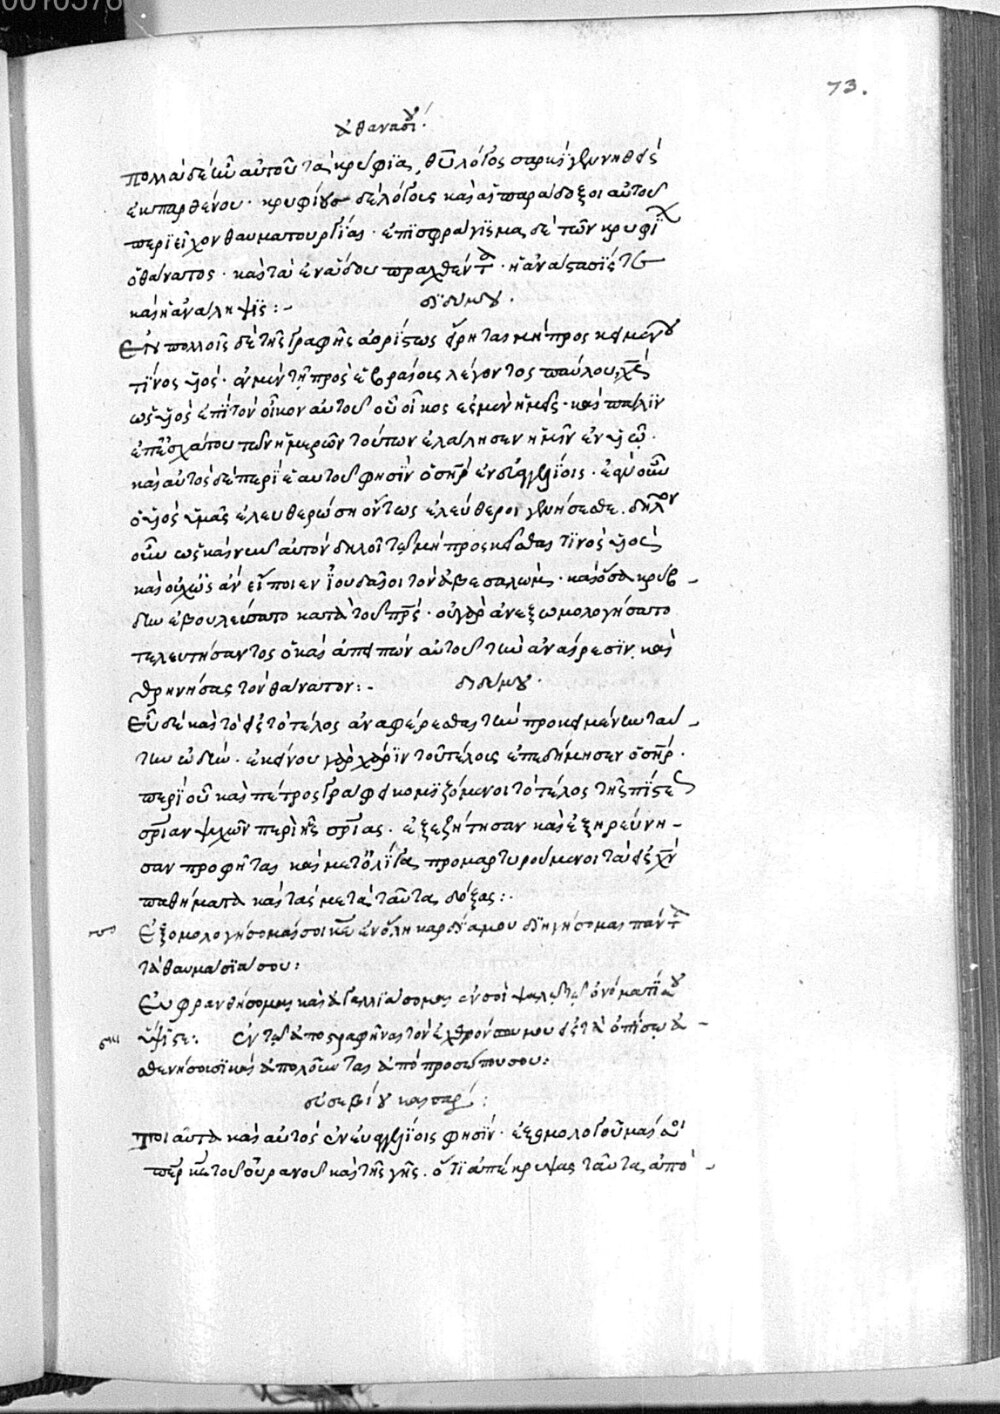 0010576
73.
ἀθανασίου.
πολλὰ δὲ ἦν αὐτοῦ τὰ κρύφια, θεὸς λόγος σαρκὶ γεννηθεὶς
ἐκ παρθένου. κρυφίους δὲ λόγους καὶ αἱ παράδοξοι αὐτοῦ
περιεῖχον θαυματουργίαι. ἐπισφράγισμα δὲ τῶν κρυφίων
ὁ θάνατος. καὶ τὰ ἐν ἅδου πραχθέντα. ἡ ἀνάστασίς τε
καὶ ἡ ἀνάληψις:-
διδύμου.
Ἐν πολλοῖς δὲ τῆς γραφῆς ἀορίστως εἴρηται μὴ προσκειμένου
τίνος υἱός. ἐν μὲν τῇ πρὸς ἑβραίους λέγοντος παύλου, χς
ὡς υἱὸς ἐπὶ τὸν οἶκον αὐτοῦ οὗ οἶκός ἐσμεν ἡμεῖς. καὶ πάλιν
ἐπ' ἐσχάτου τῶν ἡμερῶν τούτων ἐλάλησεν ἡμῖν ἐν υἱῷ.
καὶ αὐτὸς δὲ περὶ ἑαυτοῦ φησὶν ὁ σηρ ἐν εὐαγγελίοις. ἐὰν οὖν
ὁ υἱὸς ὑμᾶς ἐλευθερώσῃ ὄντως ἐλεύθεροι γενήσεσθε. δῆλον
οὖν ὡς καὶ νῦν αὐτὸν δηλοῖ τῷ μὴ προσκεῖσθαι τίνος υἱός
καὶ οὐχ ὡς ἂν εἴποιεν ἰουδαῖοι τὸν ἀβεσαλώμ. καὶ ὅσα κρύβ-
δην ἐβουλεύσατο κατὰ τοῦ πρς. οὐ γὰρ ἀνεξωμολογήσατο
τελευτήσαντος ὃ καὶ ἀπειπὼν αὐτοῦ τὴν ἀναίρεσιν καὶ
θρηνήσας τὸν θάνατον:-
διδύμου.
Εὖ δὲ καὶ τὸ εἰς τὸ τέλος ἀναφέρεσθαι τὴν προκειμένην ταύ-
την ᾠδήν. ἐκείνου γὰρ χάριν τοῦ τέλους ἐπεδήμησεν ὁ σηρ.
περὶ οὗ καὶ πέτρος γράφει κομιζόμενοι τὸ τέλος τῆς πίστεως
σριαν ψυχῶν περὶ ἧς σριας. ἐξεζήτησαν καὶ ἐξηρεύνη-
σαν προφῆται καὶ μετ' ὀλίγα, προμαρτυρούμενοι τὰ εἰς χν
παθήματα καὶ τὰς μετὰ ταῦτα δόξας:-
Ἐξομολογήσομαί σοι κε ἐν ὅλῃ καρδίᾳ μου διηγήσομαι πάντα
τὰ θαυμάσιά σου:
Εὐφρανθήσομαι καὶ ἀγαλλιάσομαι ἐν σοὶ ψαλῶ τῷ ὀνόματί σου
ὕψιστε:. Ἐν τῷ ἀποστραφῆναι τὸν ἐχθρόν μου εἰς τὰ ὀπίσω ἀ-
σθενήσουσι καὶ ἀπολοῦνται ἀπὸ προσώπου σου:
εὐσεβίου καισαρ:
Τοιαῦτα καὶ αὐτὸς ἐν εὐαγγελίοις φησίν. ἐξομολογοῦμαί σοι
περ κε τοῦ οὐρανοῦ καὶ τῆς γῆς. ὅτι ἀπέκρυψας ταῦτα, ἀπὸ-